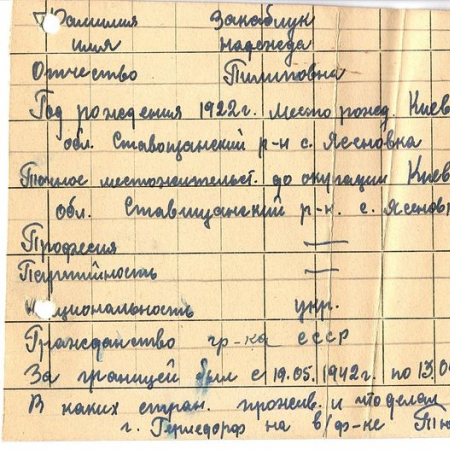 Фамилия Закаблук
имя надежда
Отчество Пилиповна
Год рождения 1922г. Место рожд. Киев
обл. Ставищанский р-н с. Ясеновка
Точное местожительст. до окупации Киев
обл. Ставищанский р-н. с. Ясенов
Професия —
Партийность —
Национальность укр.
Гражданство гр-ка СССР
За границей был с 19.05.1942г. по 13.0
В каких стран. прожив. и что делал
г. Гермсдорф на в/ф-ке